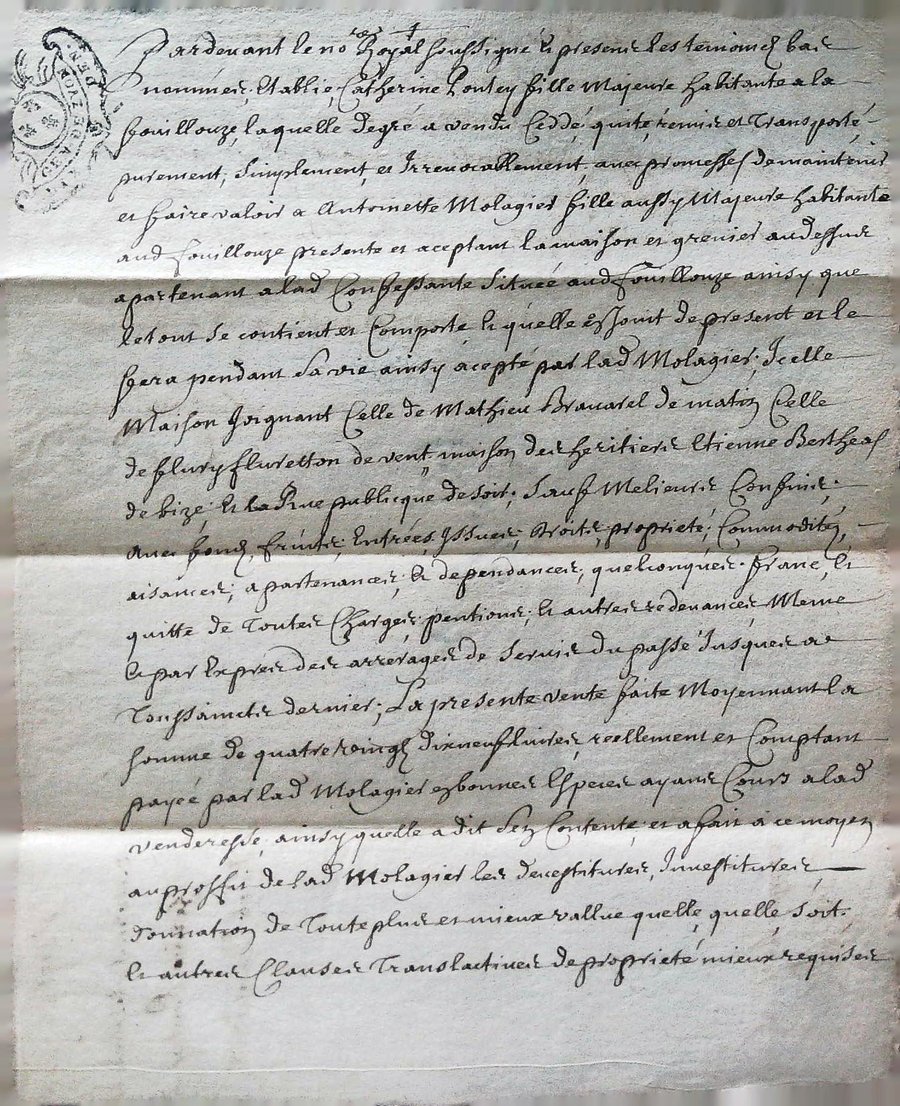 Pardevant le no.re Royal soussigné & presens les temoings bas
nommés, Etablie Catherine Pontey fille Majeure habitante a la
fouillouze, laquelle degré a vendu Ceddé, quité, remis et Transporté,
purement, simplement, et Irrevocablement, avec promesses de maintenir
et faire valoir a Antoinette Molagier fille aussy Majeure habitante
aud fouillouze presente et aceptant la maison et grenier audessus
apartenant a lad Confessante située aud fouillouze ainsy que
le tout se contient et Comporte, & quelle en Jouit de present et le
fera pendant sa vie ainsy acepté par lad Molagier, Icelle
Maison Joignant Celle de Mathieu Bravarel de matin Celle
de fleury fluretton de vent, maison des heritiers Etienne Bertheas
de bize, & la Rue publicque de soir, sauf Melieurs Confins,
avec fonds, fruits, Entrées, Issues, droits, proprieté, Commoditez,
aisances, apartenances, & dependances, quelconques. franc, &
quitte de Toutes Charges, pentions, & autres redevances, Meme
& par Exprés des arrerages de servis du passé Jusques a
Toussaincts dernier, La presente vente faite Moyennant la
somme de quatre vingt dix neuf livres, reellement et Comptant
payée par lad Molagier en bonnes Especes ayans Cours a lad
venderesse, ainsy quelle a dit sen Contente, et a fait a ce moyen
au proffit de lad Molagier les devestitures, Investitures,
donnation de Toute plus et mieux vallue quelle, quelle soit.
& autres Clauses Translactives de proprieté mieux requises